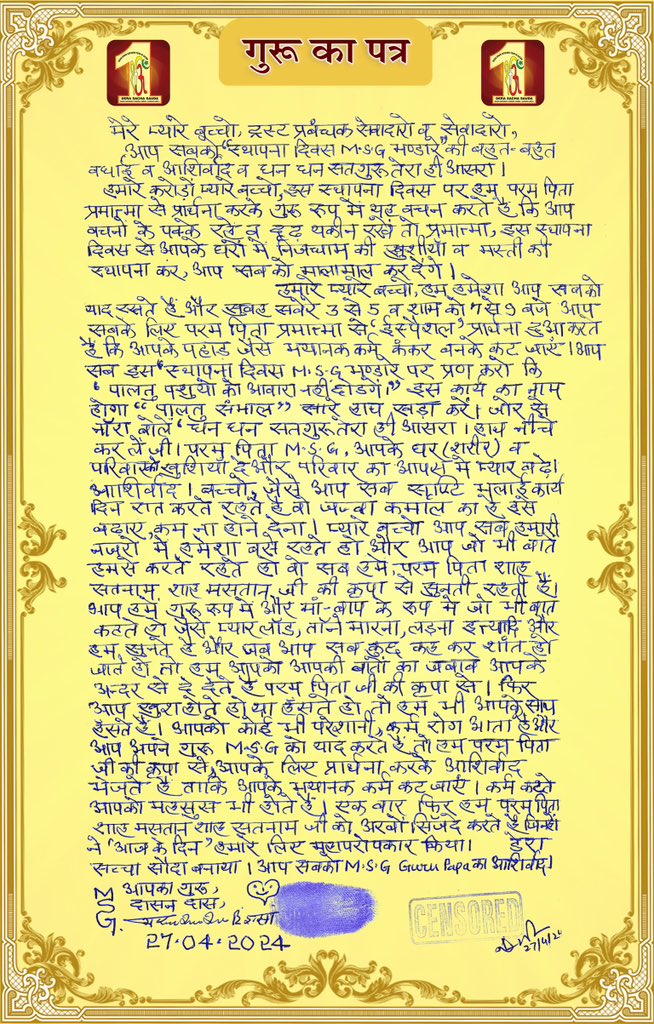 गुरू का पत्र
DERA SACHA SAUDA
DERA SACHA SAUDA
मेरे प्यारे बच्चो, ट्रस्ट प्रबंधक सेवादारो व सेवादारो,
आप सबको "स्थापना दिवस M.S.G भण्डारे" की बहुत-बहुत
बधाई व आशिर्वाद व धन धन सतगुरू तेरा ही आसरा।
हमारे करोड़ों प्यारे बच्चो, इस स्थापना दिवस पर हम परम पिता
प्रमात्मा से प्रार्थना करके गुरू रूप में यह वचन करते हैं कि आप
वचनों के पक्के रहें व दृढ़ यकीन रखें तो प्रमात्मा, इस स्थापना
दिवस से आपके घरों में निजधाम की खुशीयाँ व मस्ती की
स्थापना कर, आप सबको मालामाल कर देंगे।
हमारे प्यारे बच्चो, हम हमेशा आप सबको
याद रखते हैं और सुबह सवेरे 3 से 5 व शाम को 7 से 9 बजे आप
सबके लिए परम पिता प्रमात्मा से 'ईस्पैशल' प्रार्थना हुआ करते
हैं कि आपके पहाड़ जैसे भयानक कर्म कंकर बनके कट जाएं। आप
सब इस "स्थापना दिवस M.S.G भण्डारे पर प्रण करो कि
"पालतु पशुयों को आवारा नहीं छोडेगें।" इस कार्य का नाम
होगा "पालतु संभाल" सारे हाथ खड़ा करें। जोर से
नॉरा बोलें 'धन धन सतगुरू तेरा ही आसरा। हाथ नीचे
कर लें जी। परम पिता M.S.G, आपके घर (शरीर) व
परिवार को खुशियाँ दे और परिवार का आपस में प्यार बढे।
आशिर्वाद। बच्चो, जैसे आप सब सृष्टि भलाई कार्य
दिन रात करते रहते हैं वो जज्बा कमाल का है इसे
बढ़ाएं, कम ना होने देना। प्यारे बच्चो आप सब हमारी
नजरों में हमेशा बसे रहते हो और आप जो भी बातें
हमसे करते रहते हो वो सब हमें परम पिता शाह
सतनाम, शाह मसतान जी की कृपा से सुनती रहती हैं।
आप हमें गुरू रूप में और माँ-बाप के रूप में जो भी बात
कहते हो जैसे प्यार लॉड, तॉने मारना, लड़ना इत्यादि और
हम सुनते हैं और जब आप सब कुछ कह कर शांत हो
जाते हो तो हम आपको आपकी बातों का जवाब आपके
अन्दर से दे देते हैं परम पिता जी की कृपा से। फिर
आप खुश होते हो या हंसते हो, तो हम भी आपके साथ
हंसते हैं। आपको कोई भी परेशानी, कर्म रोग आता है और
आप अपने गुरू M.S.G को याद करते हैं तो हम परम पिता
जी की कृपा से, आपके लिए प्रार्थना करके आशिर्वाद
भेजते हैं ताकि आपके भयानक कर्म कट जाएं। कर्म कटते
आपको महसुस भी होते हैं। एक बार फिर हम परम पिता
शाह मसतान शाह सतनाम जी को अरबों सिजदे करते हैं जिन्हों
ने 'आज के दिन' हमारे लिए भलापरोपकार किया। डेरा
सच्चा सौदा बनाया। आप सबको M.S.G Guru Papa का आशिर्वाद।
M आपका गुरू,
S दासन दास,
G.
27.04.2024
CENSORED
27/4/24